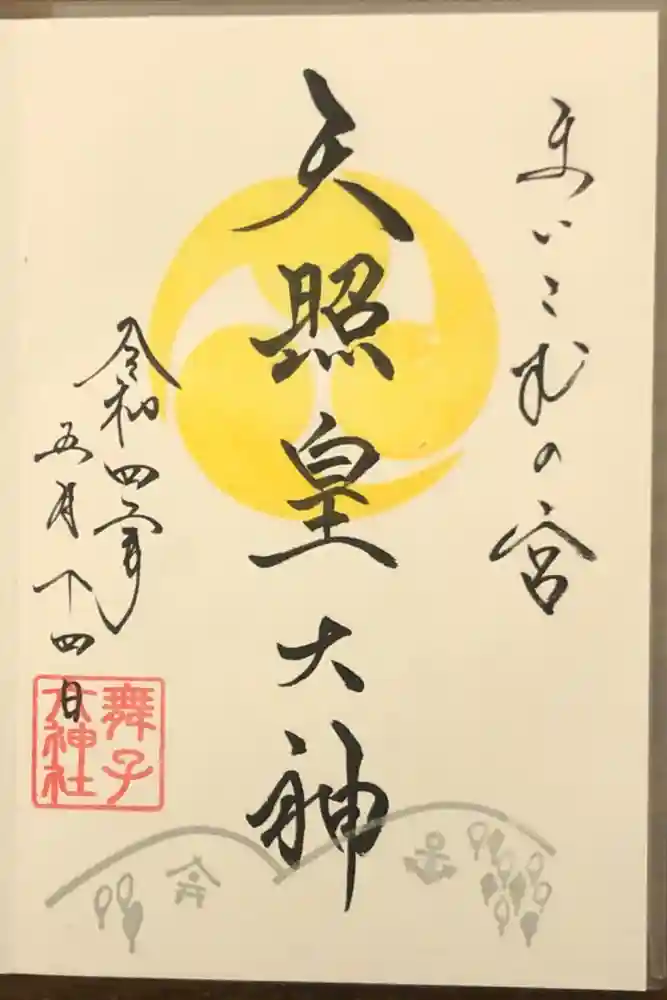 まいこむの宮
天照皇大神
令和四年
五月十四日
舞子
六神社